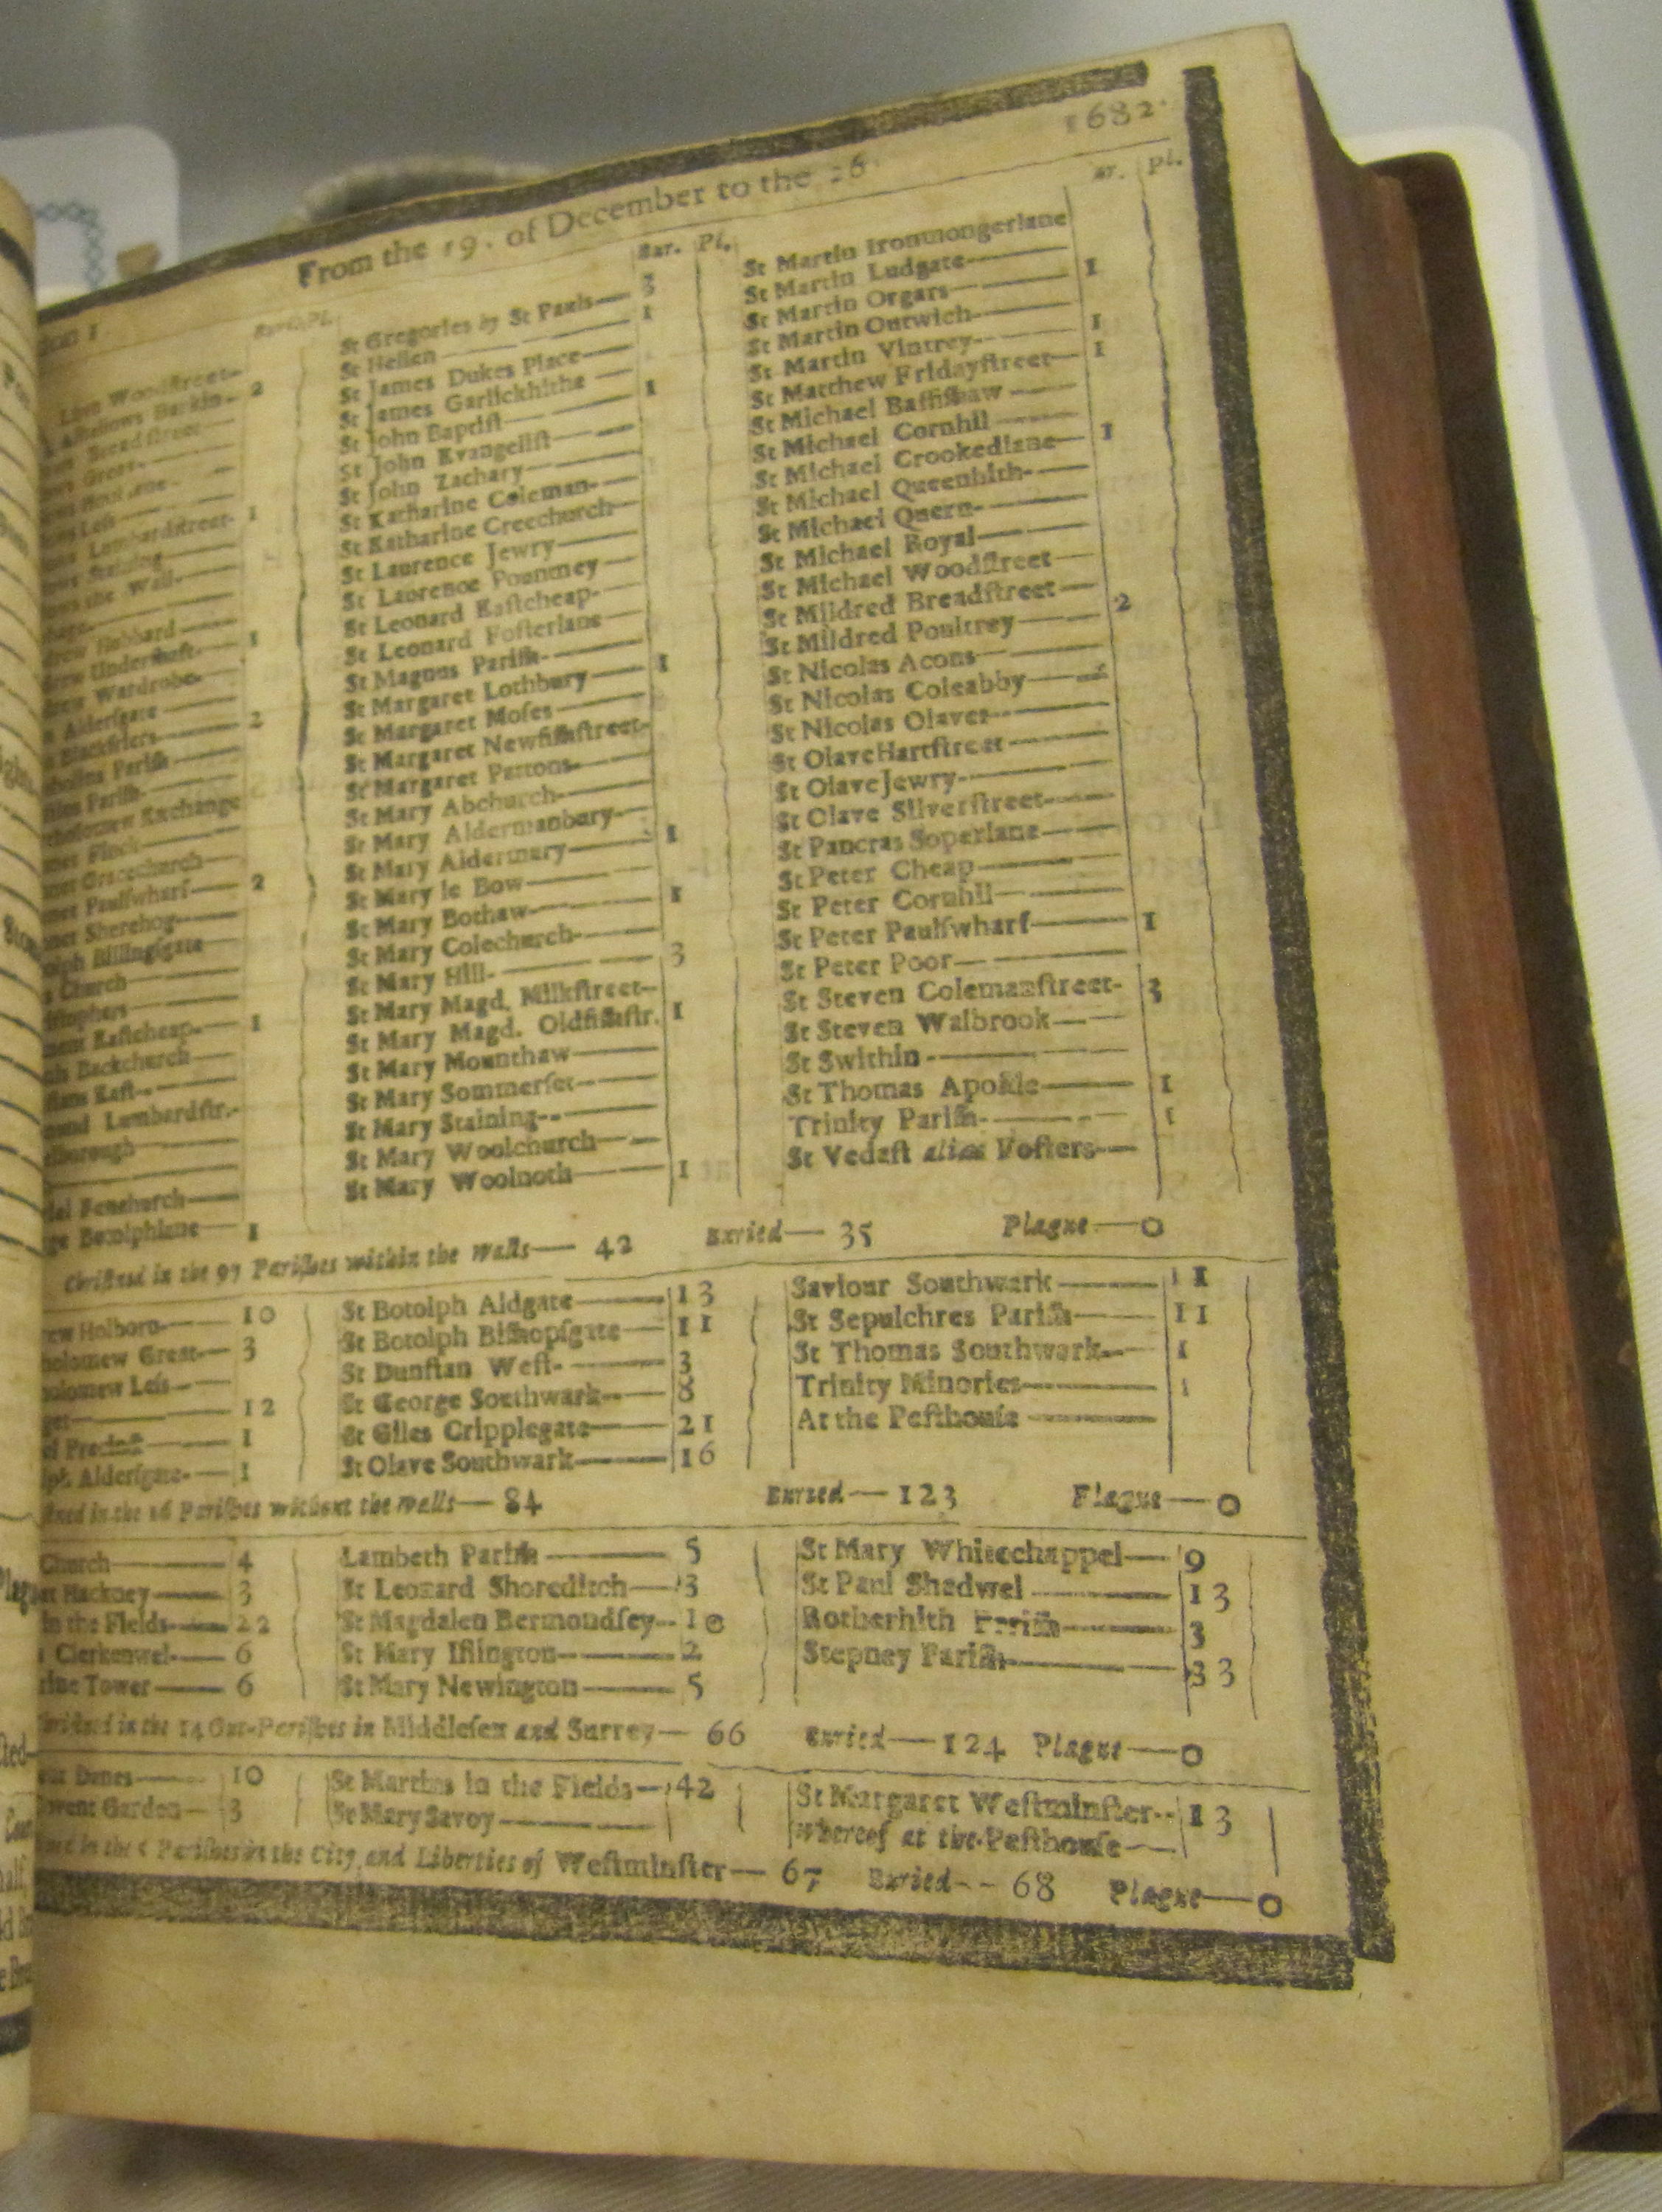 1682.
From the 19. of December to the 26
Bur. Pl.
Woodstreet
Barkin 2
Breadstreet
Great
Less
Lumbardstreet 1
Staining
the Wall
Hubbard
Undershaft 1
Wardrobe
Aldersgate
Blackfriers 2
Parish
Parish
Exchange
Finck
Gracechurch
Paulswharf 2
Sherehog
Billingsgate
Church
Eastcheap 1
Backchurch
East
Lumbardstr.
Fenchurch
Botolphlane 1
Bur. Pl.
St Gregories by St Pauls 3
St Hellen 1
St James Dukes Place
St James Garlickhithe
St John Baptist 1
St John Evangelist
St John Zachary
St Katharine Coleman
St Katharine Creechurch
St Laurence Jewry
St Laurence Pountney
St Leonard Eastcheap
St Leonard Fosterlane
St Magnus Parish
St Margaret Lothbury 1
St Margaret Moses
St Margaret Newfishstreet
St Margaret Pattons
St Mary Abchurch
St Mary Aldermanbury
St Mary Aldermary 1
St Mary le Bow
St Mary Bothaw 1
St Mary Colechurch
St Mary Hill 3
St Mary Magd. Milkstreet
St Mary Magd. Oldfishstr. 1
St Mary Mounthaw
St Mary Sommerset
St Mary Staining
St Mary Woolchurch
St Mary Woolnoth 1
Pl.
St Martin Ironmongerlane
St Martin Ludgate 1
St Martin Orgars
St Martin Outwich 1
St Martin Vintrey 1
St Matthew Fridaystreet
St Michael Bassishaw
St Michael Cornhil 1
St Michael Crookedlane
St Michael Queenhith
St Michael Quern
St Michael Royal
St Michael Woodstreet
St Mildred Breadstreet 2
St Mildred Poultrey
St Nicolas Acons
St Nicolas Coleabby
St Nicolas Olaves
St Olave Hartstreet
St Olave Jewry
St Olave Silverstreet
St Pancras Soperlane
St Peter Cheap
St Peter Cornhil
St Peter Paulswharf 1
St Peter Poor
St Steven Colemanstreet 3
St Steven Walbrook
St Swithin
St Thomas Apostle 1
Trinity Parish 1
St Vedast alias Fosters
Christned in the 97 Parishes within the Walls— 42 Buried— 35 Plague—0
Holborn 10
Great 3
Less
12
Precinct 1
Aldersgate 1
St Botolph Aldgate 13
St Botolph Bishopsgate 11
St Dunstan West 3
St George Southwark 8
St Giles Cripplegate 21
St Olave Southwark 16
Saviour Southwark 11
St Sepulchres Parish 11
St Thomas Southwark 1
Trinity Minories 1
At the Pesthouse
in the 16 Parishes without the Walls— 84 Buried— 123 Plague—0
Church 4
Hackney 3
in the Fields 22
Clerkenwel 6
Tower 6
Lambeth Parish 5
St Leonard Shoreditch 3
St Magdalen Bermondsey 10
St Mary Islington 2
St Mary Newington 5
St Mary Whitechappel 9
St Paul Shadwel 13
Rotherhith Parish 3
Stepney Parish 33
in the 14 Out-Parishes in Middlesex and Surrey— 66 Buried— 124 Plague—0
Danes 10
Garden 3
St Martins in the Fields 42
St Mary Savoy
St Margaret Westminster 13
whereof at the Pesthouse
in the Parishes in the City and Liberties of Westminster— 67 Buried-- 68 Plague—0